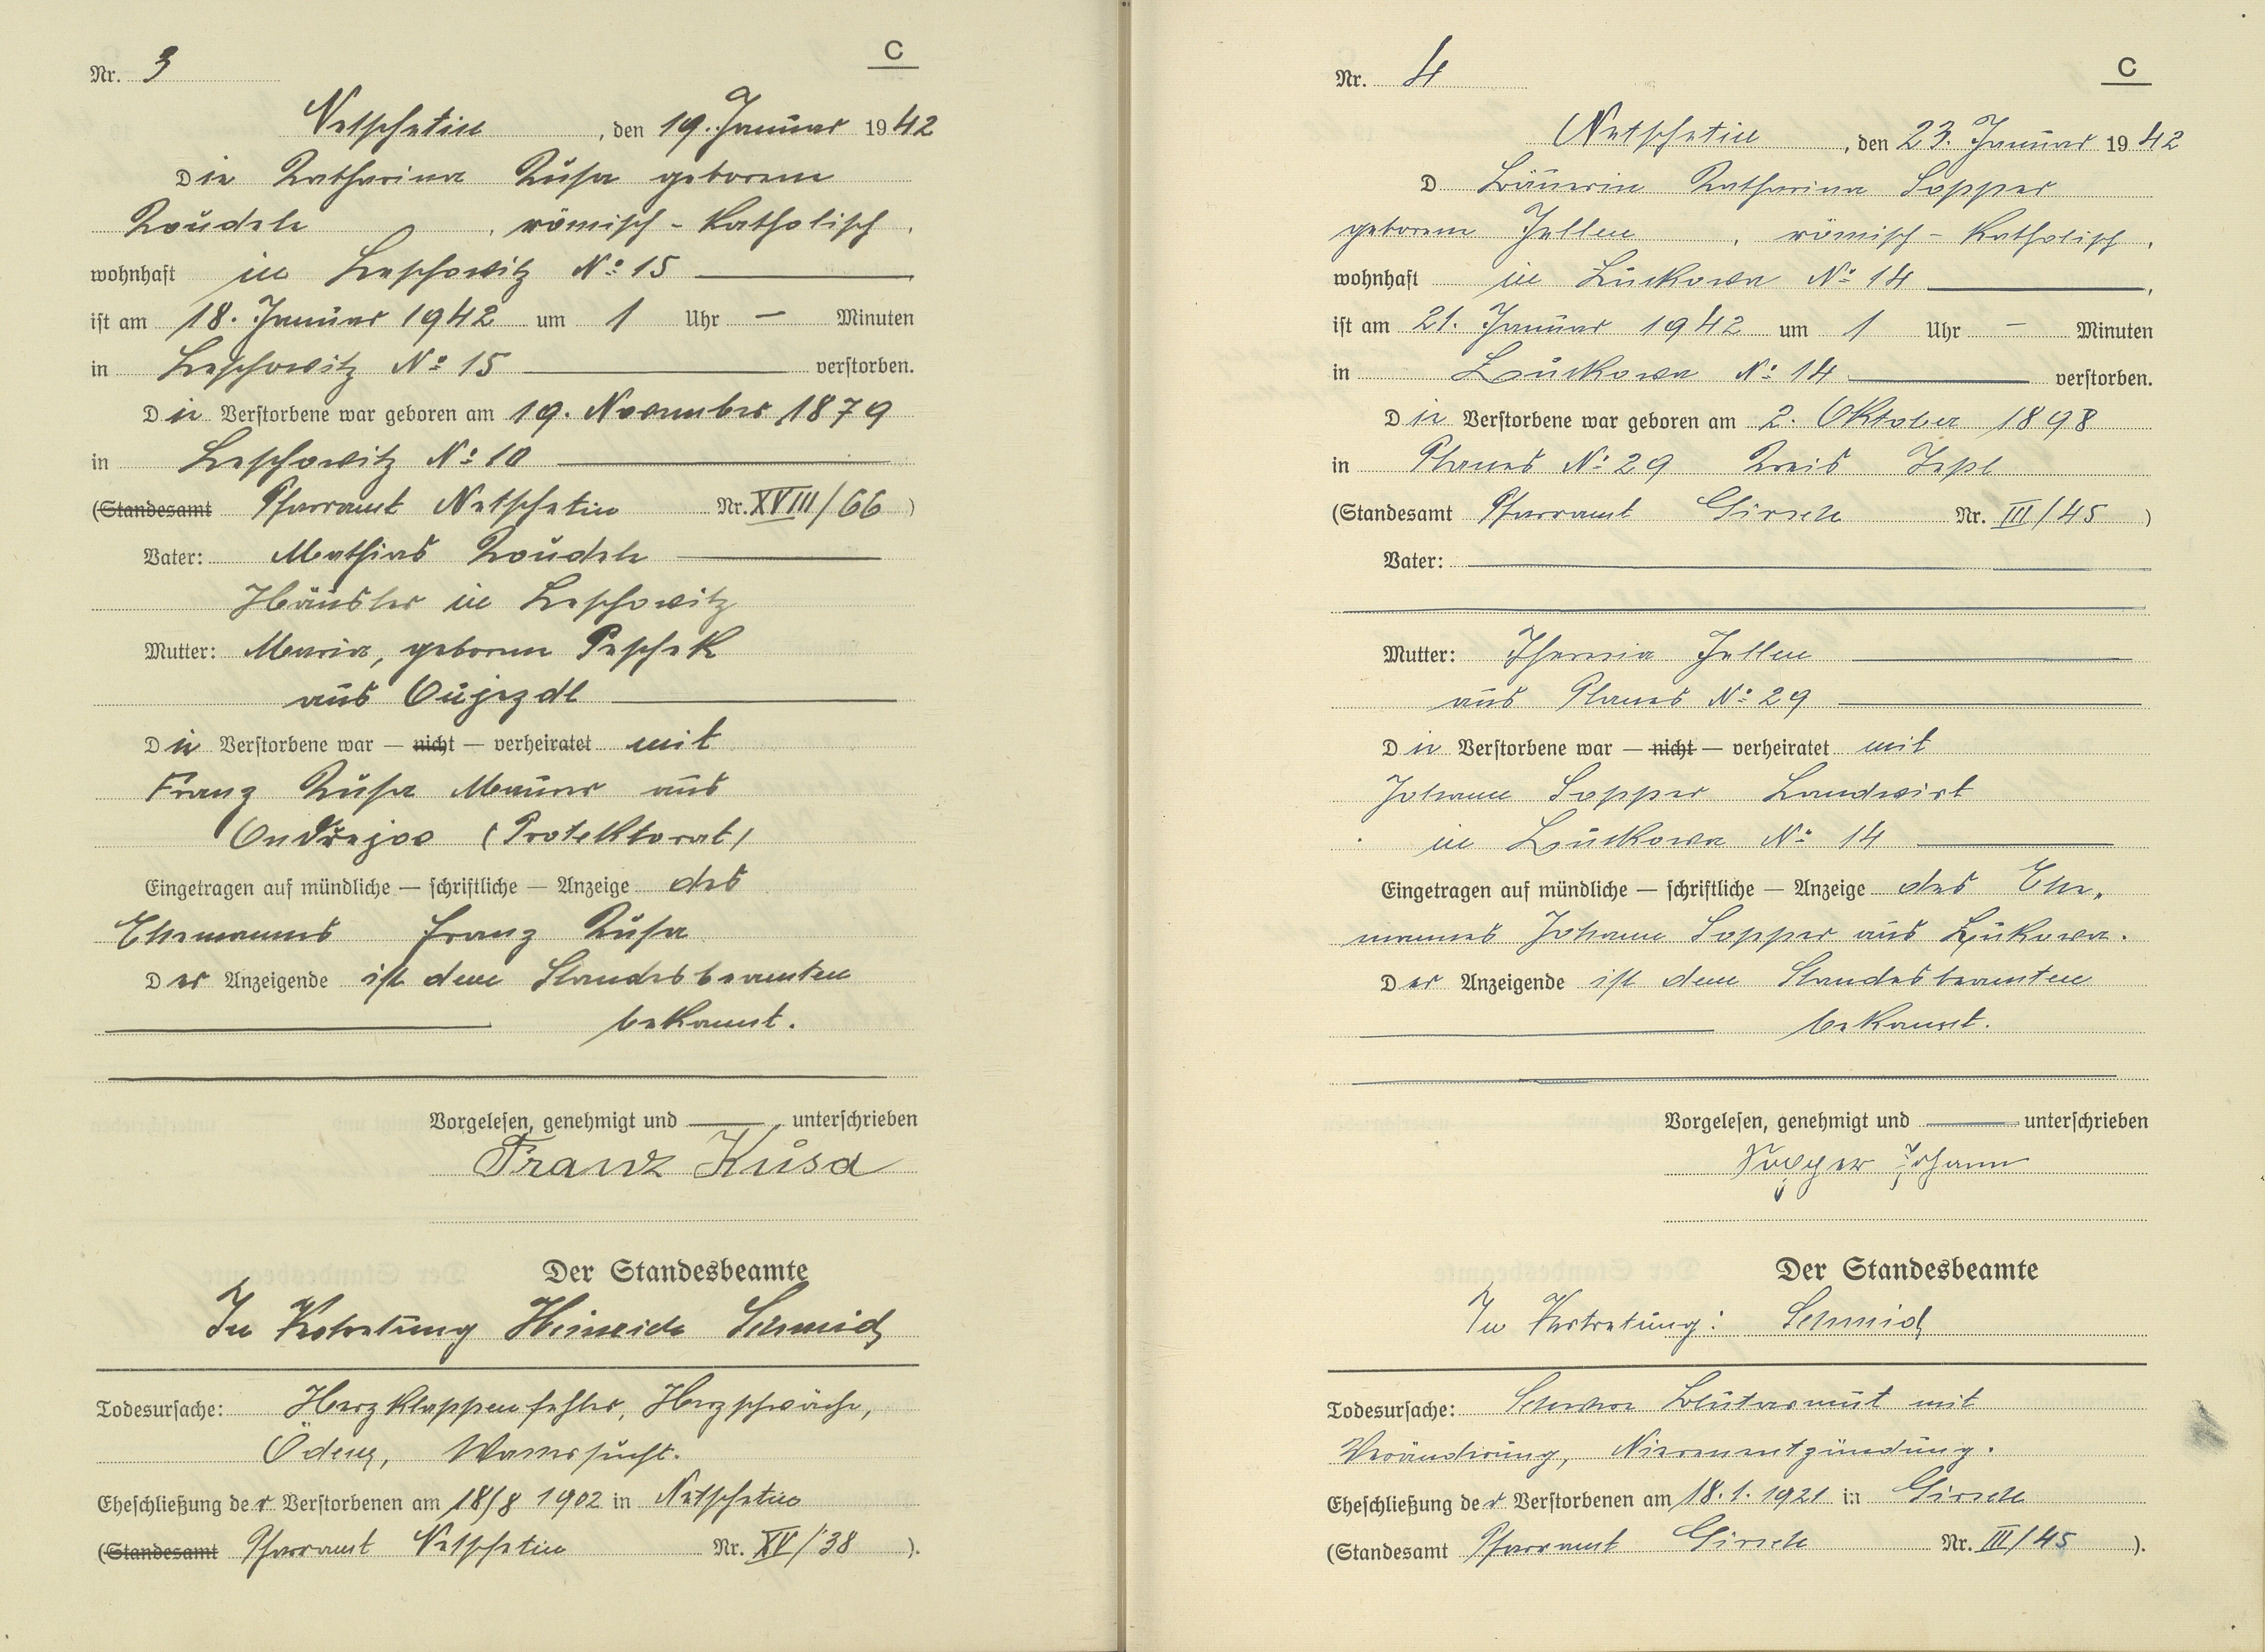 Nr. 3
C
Netschetin, den 19. Januar 1942
Die Katharina Kusa geborene
Koudele, römisch-katholisch,
wohnhaft in Leschowitz No 15
ist am 18. Januar 1942 um 1 Uhr — Minuten
in Leschowitz No 15 verstorben.
Die Verstorbene war geboren am 19. November 1879
in Leschowitz No 10
(Standesamt Pfarramt Netschetin Nr. XVIII/66)
Vater: Mathias Koudele
Häusler in Leschowitz
Mutter: Maria, geborene Peschek
aus Oujezdl
Die Verstorbene war — nicht — verheiratet mit
Franz Kusa Maurer aus
Ondřejov (Protektorat)
Eingetragen auf mündliche — schriftliche — Anzeige des
Ehemannes Franz Kusa
Der Anzeigende ist dem Standesbeamten
bekannt.
Vorgelesen, genehmigt und unterschrieben
Franz Kůsa
Der Standesbeamte
In Vertretung Schmid
Todesursache: Herzklappenfehler, Herzschwäche,
Ödem, Wassersucht.
Eheschließung der Verstorbenen am 18/8 1902 in Netschetin
(Standesamt Pfarramt Netschetin Nr. XV/38).
Nr. 4
C
Netschetin, den 23. Januar 1942
D Bäuerin Katharina Sopper
geborene Jellen, römisch-katholisch,
wohnhaft in Luckowa No 14,
ist am 21. Januar 1942 um 1 Uhr — Minuten
in Luckowa No 14 verstorben.
Die Verstorbene war geboren am 2. Oktober 1898
in Planes No 29 Kreis Tepl
(Standesamt Pfarramt Girsch Nr. III/45)
Vater:
Mutter: Theresia Jellen
aus Planes No 29
Die Verstorbene war — nicht — verheiratet mit
Johann Sopper Landwirt
in Luckowa No 14
Eingetragen auf mündliche — schriftliche — Anzeige des Ehe-
mannes Johann Sopper aus Lukowa.
Der Anzeigende ist dem Standesbeamten
bekannt.
Vorgelesen, genehmigt und unterschrieben
Sopper Johann
Der Standesbeamte
In Vertretung: Schmid
Todesursache: Schwere Blutarmut mit
Veränderung, Nierenentzündung.
Eheschließung der Verstorbenen am 18.1.1921 in Girsch
(Standesamt Pfarramt Girsch Nr. III/45).